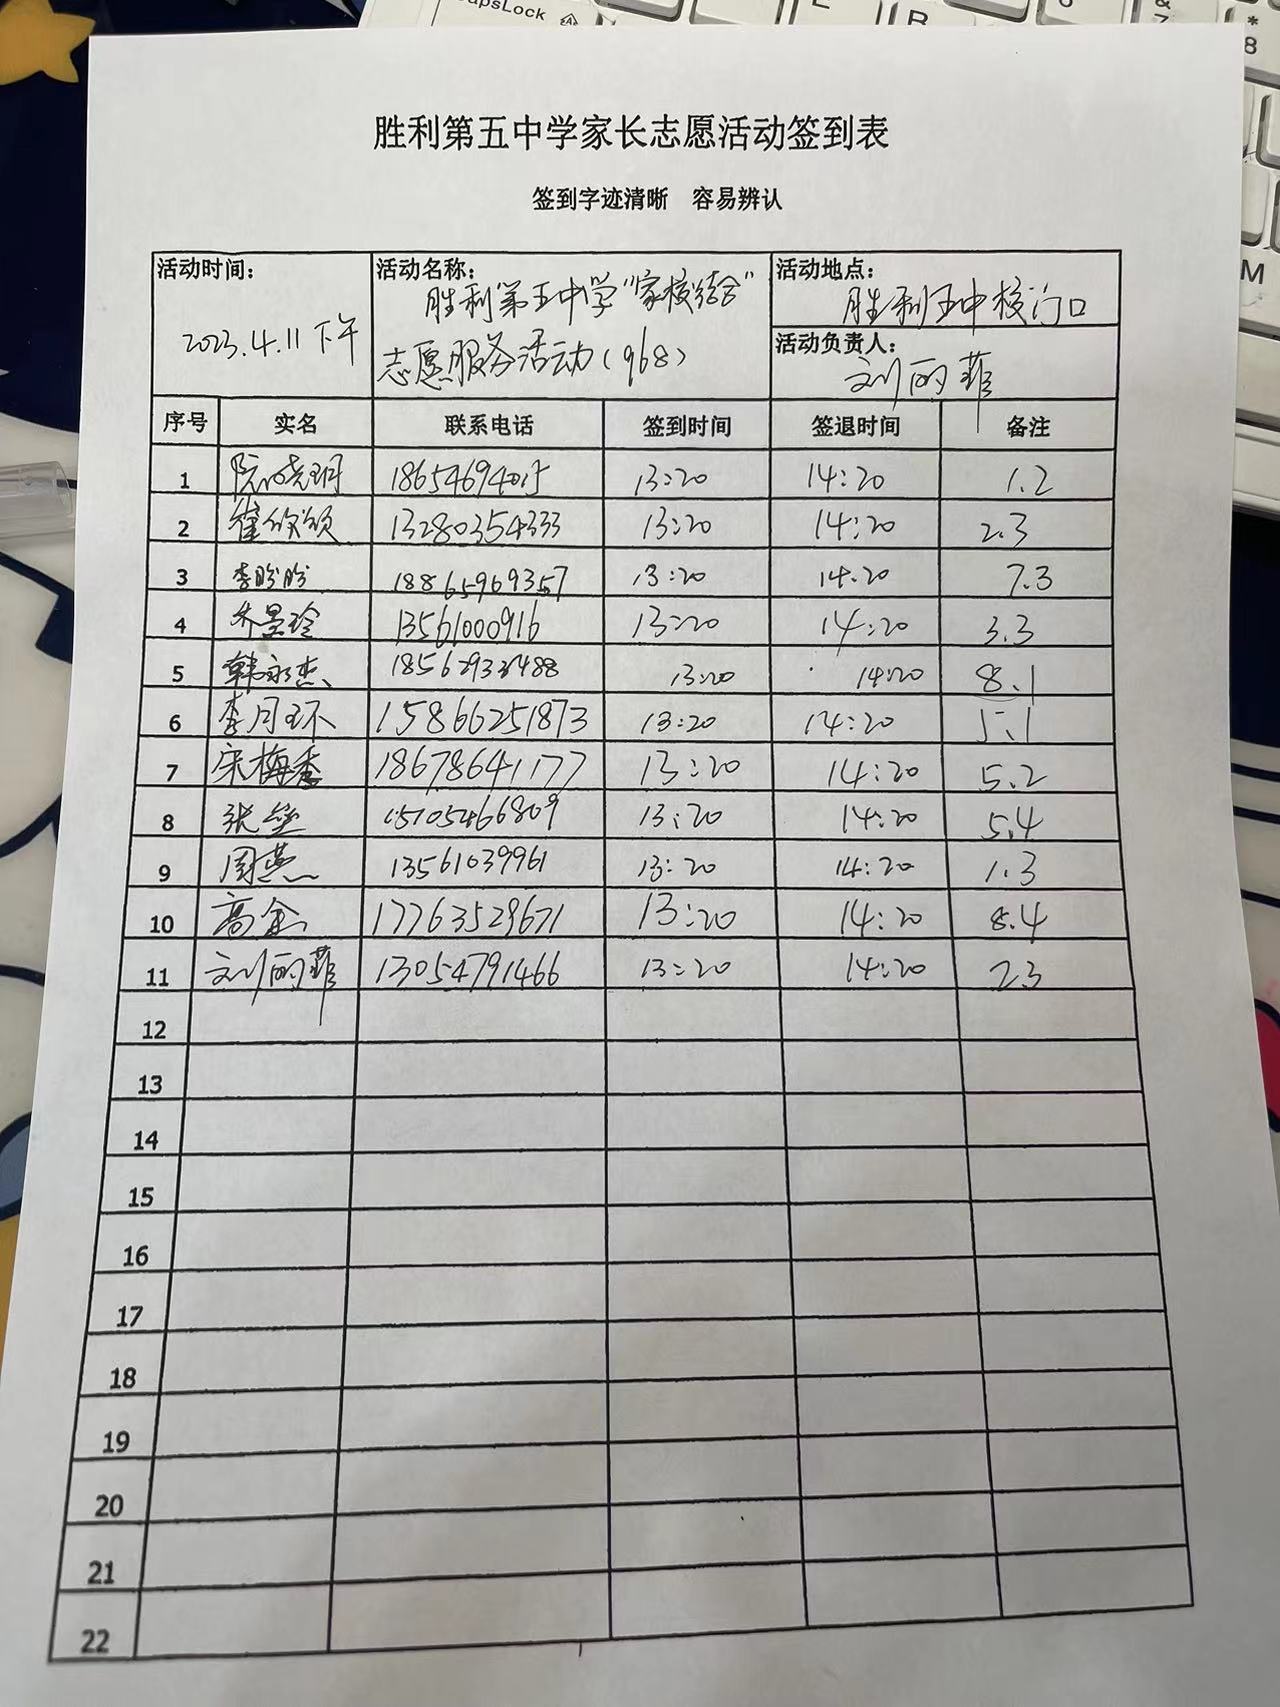 CapsLock
胜利第五中学家长志愿活动签到表
签到字迹清晰 容易辨认
活动时间: 2023.4.11 下午
活动名称: 胜利第五中学“家校结合”
志愿服务活动(968)
活动地点: 胜利五中校门口
活动负责人: 刘丽菲
序号 实名 联系电话 签到时间 签退时间 备注
1 阮晓玥 18654694015 13:20 14:20 1.2
2 崔欣颂 13280354333 13:20 14:20 2.3
3 李盼盼 18865969357 13:20 14:20 7.3
4 13561000916 13:20 14:20 3.3
5 韩永杰 13:20 14:20 8.1
6 李月环 15866251873 13:20 14:20 5.1
7 宋梅香 18678641177 13:20 14:20 5.2
8 张莹 15105466809 13:20 14:20 5.4
9 周燕 13561039961 13:20 14:20 1.3
10 高金 17763529671 13:20 14:20 8.4
11 刘丽菲 13054791466 13:20 14:20 2.3
12
13
14
15
16
17
18
19
20
21
22